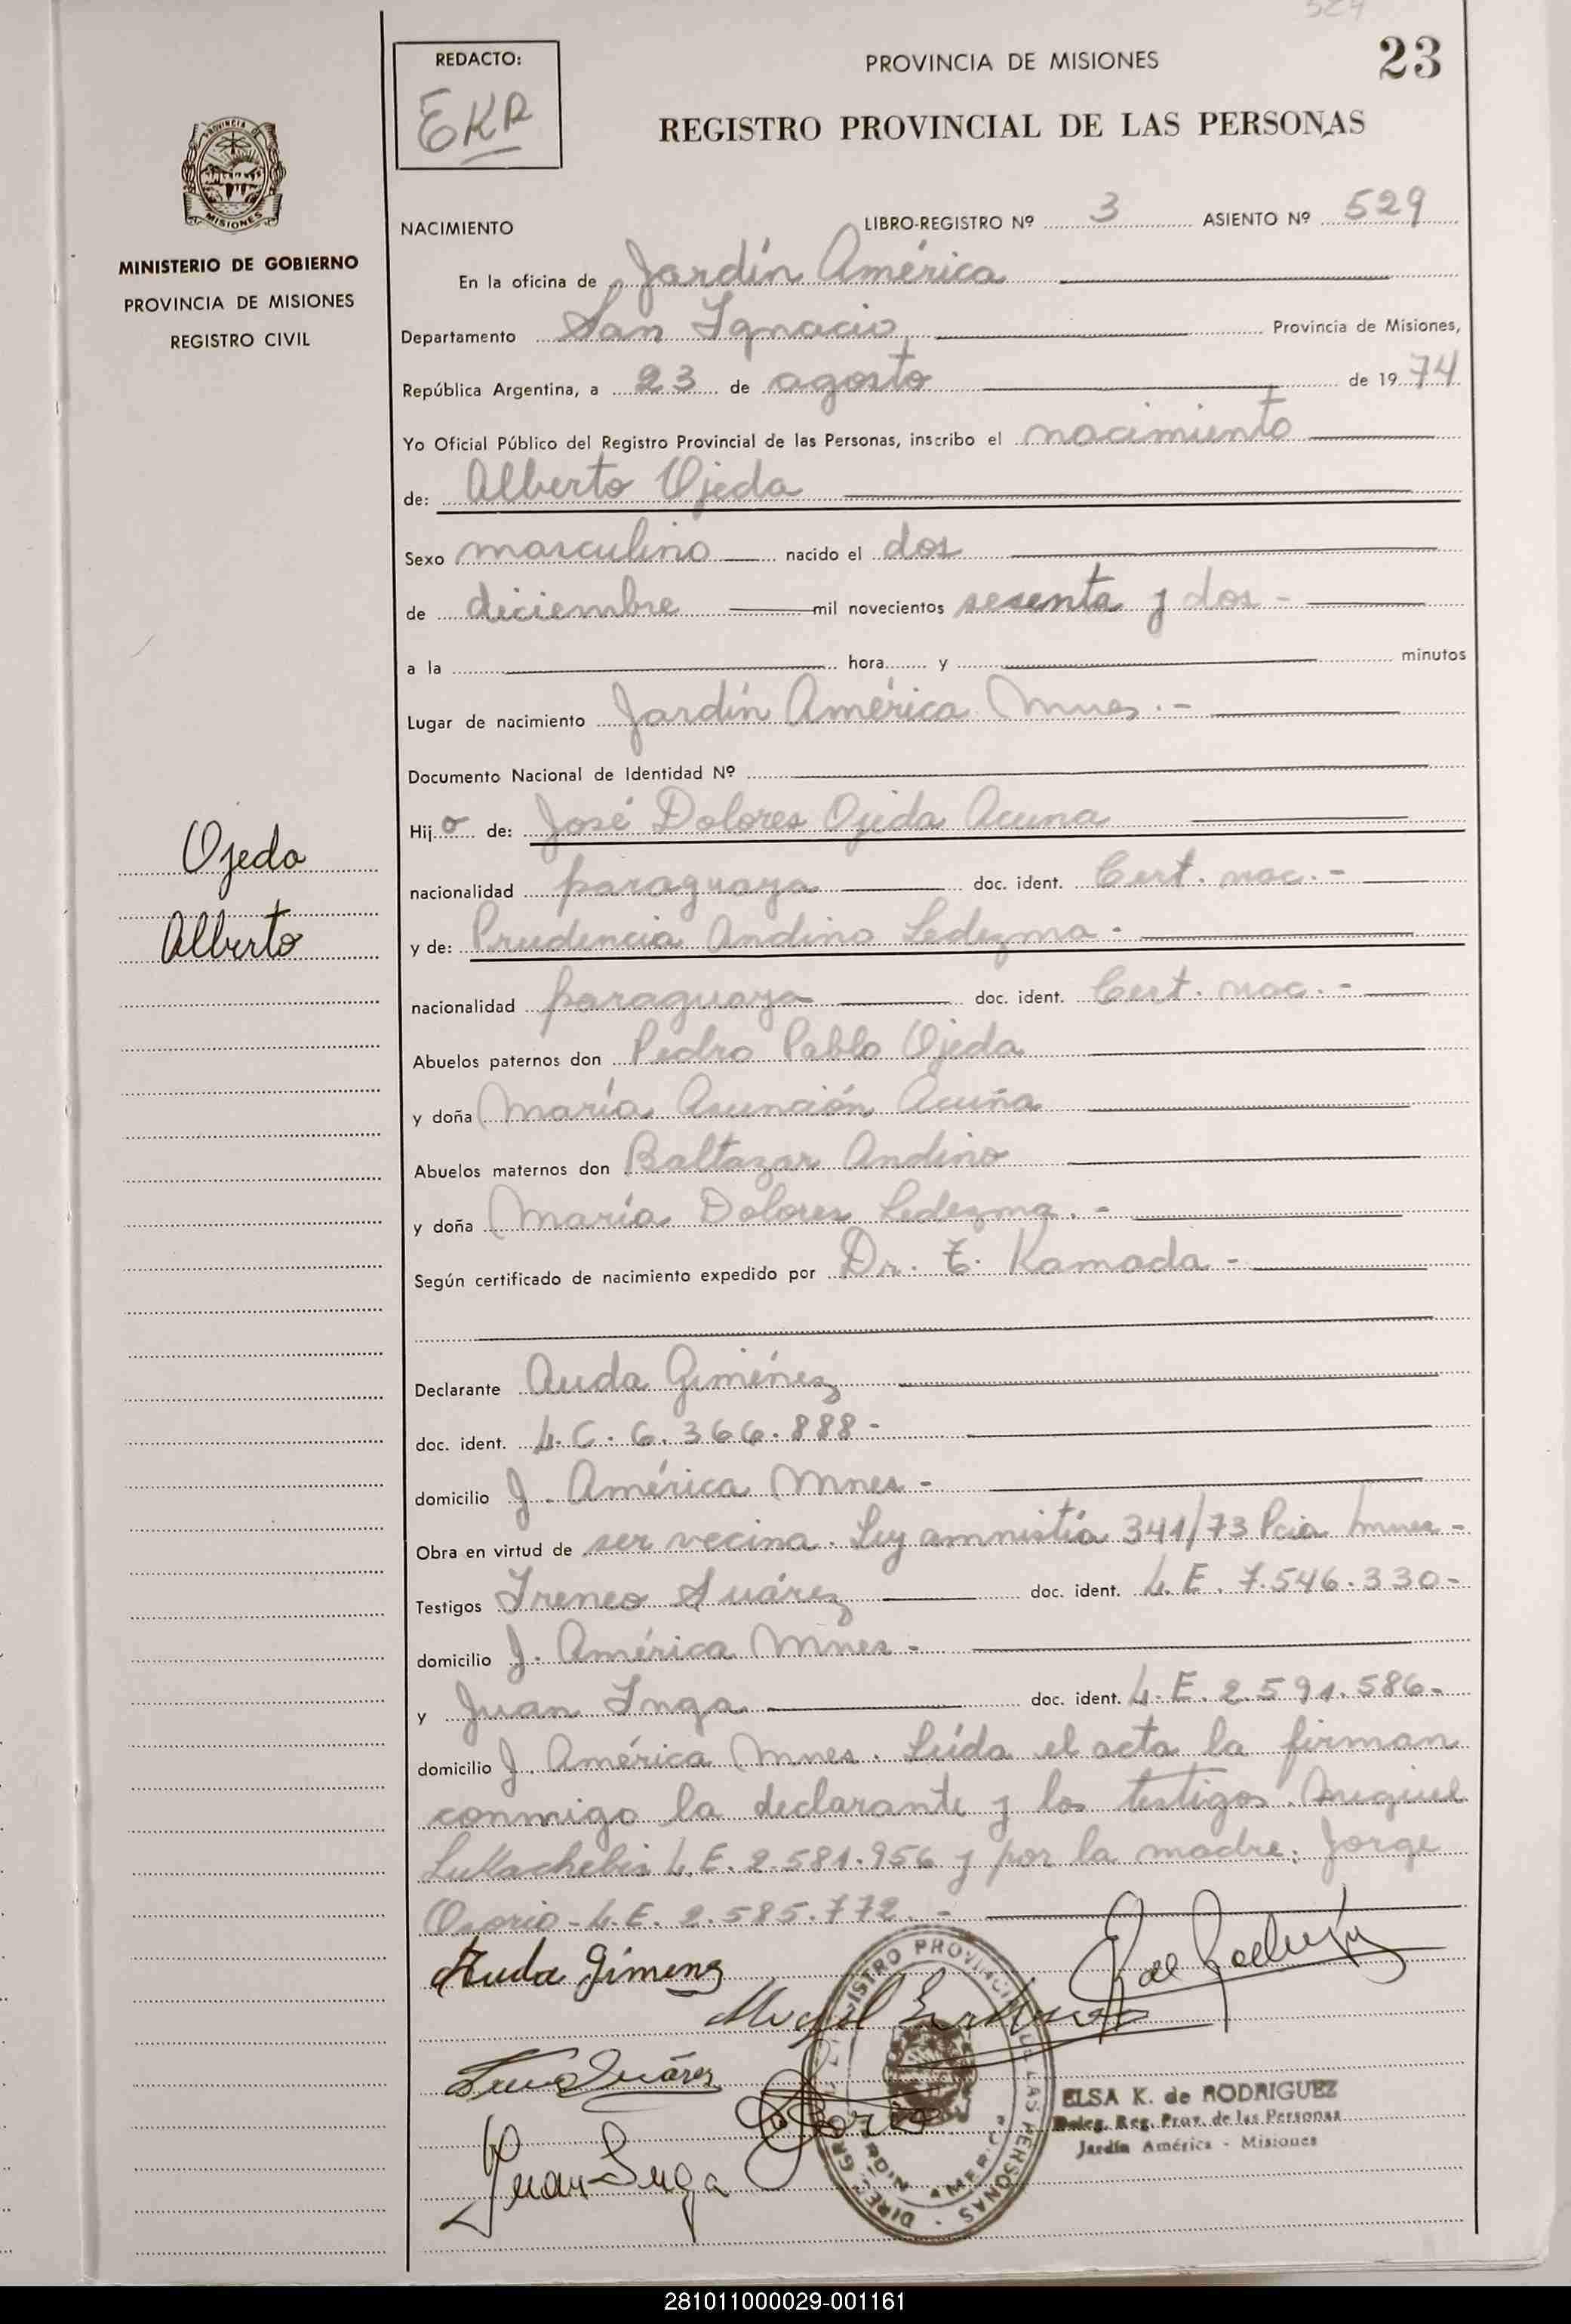 524
REDACTO:
EKR
PROVINCIA DE MISIONES
23
REGISTRO PROVINCIAL DE LAS PERSONAS
PROVINCIA DE
MISIONES
MINISTERIO DE GOBIERNO
PROVINCIA DE MISIONES
REGISTRO CIVIL
Ojeda
Alberto
NACIMIENTO LIBRO-REGISTRO Nº 3 ASIENTO Nº 529
En la oficina de Jardín América
Departamento San Ignacio Provincia de Misiones,
República Argentina, a 23 de agosto de 1974
Yo Oficial Público del Registro Provincial de las Personas, inscribo el nacimiento
de: Alberto Ojeda
Sexo masculino nacido el dos
de diciembre mil novecientos sesenta y dos -
a la hora y minutos
Lugar de nacimiento Jardín América Mnes. -
Documento Nacional de Identidad Nº
Hijo de: José Dolores Ojeda Acuna
nacionalidad paraguaya doc. ident. Cert. nac. -
y de: Prudencia Andino Ledezma -
nacionalidad paraguaya doc. ident. Cert. nac. -
Abuelos paternos don Pedro Pablo Ojeda
y doña María Asunción Acuña
Abuelos maternos don Baltazar Andino
y doña María Dolores Ledezma. -
Según certificado de nacimiento expedido por Dr. T. Kamada -
Declarante Auda Giménez
doc. ident. L.C. 6.366.888 -
domicilio J. América Mnes -
Obra en virtud de ser vecina. Ley amnistía 341/73 Pcia Mnes -
Testigos Ireneo Suárez doc. ident. L.E. 7.546.330 -
domicilio J. América Mnes -
y Juan Inga doc. ident. L.E. 2.591.586 -
domicilio J. América Mnes. Leída el acta la firman
conmigo la declarante y los testigos. Miguel
L.E. 2.581.956 y por la madre: Jorge
Osorio - L.E. 2.585.772. -
Auda Gimenz
Suárez
Osorio
Juan Inga
DIREC. GRAL. REGISTRO PROVINCIAL DE LAS PERSONAS
JARDIN AMERICA
ELSA K. de RODRIGUEZ
Deleg. Reg. Prov. de las Personas
Jardín América - Misiones
281011000029-001161